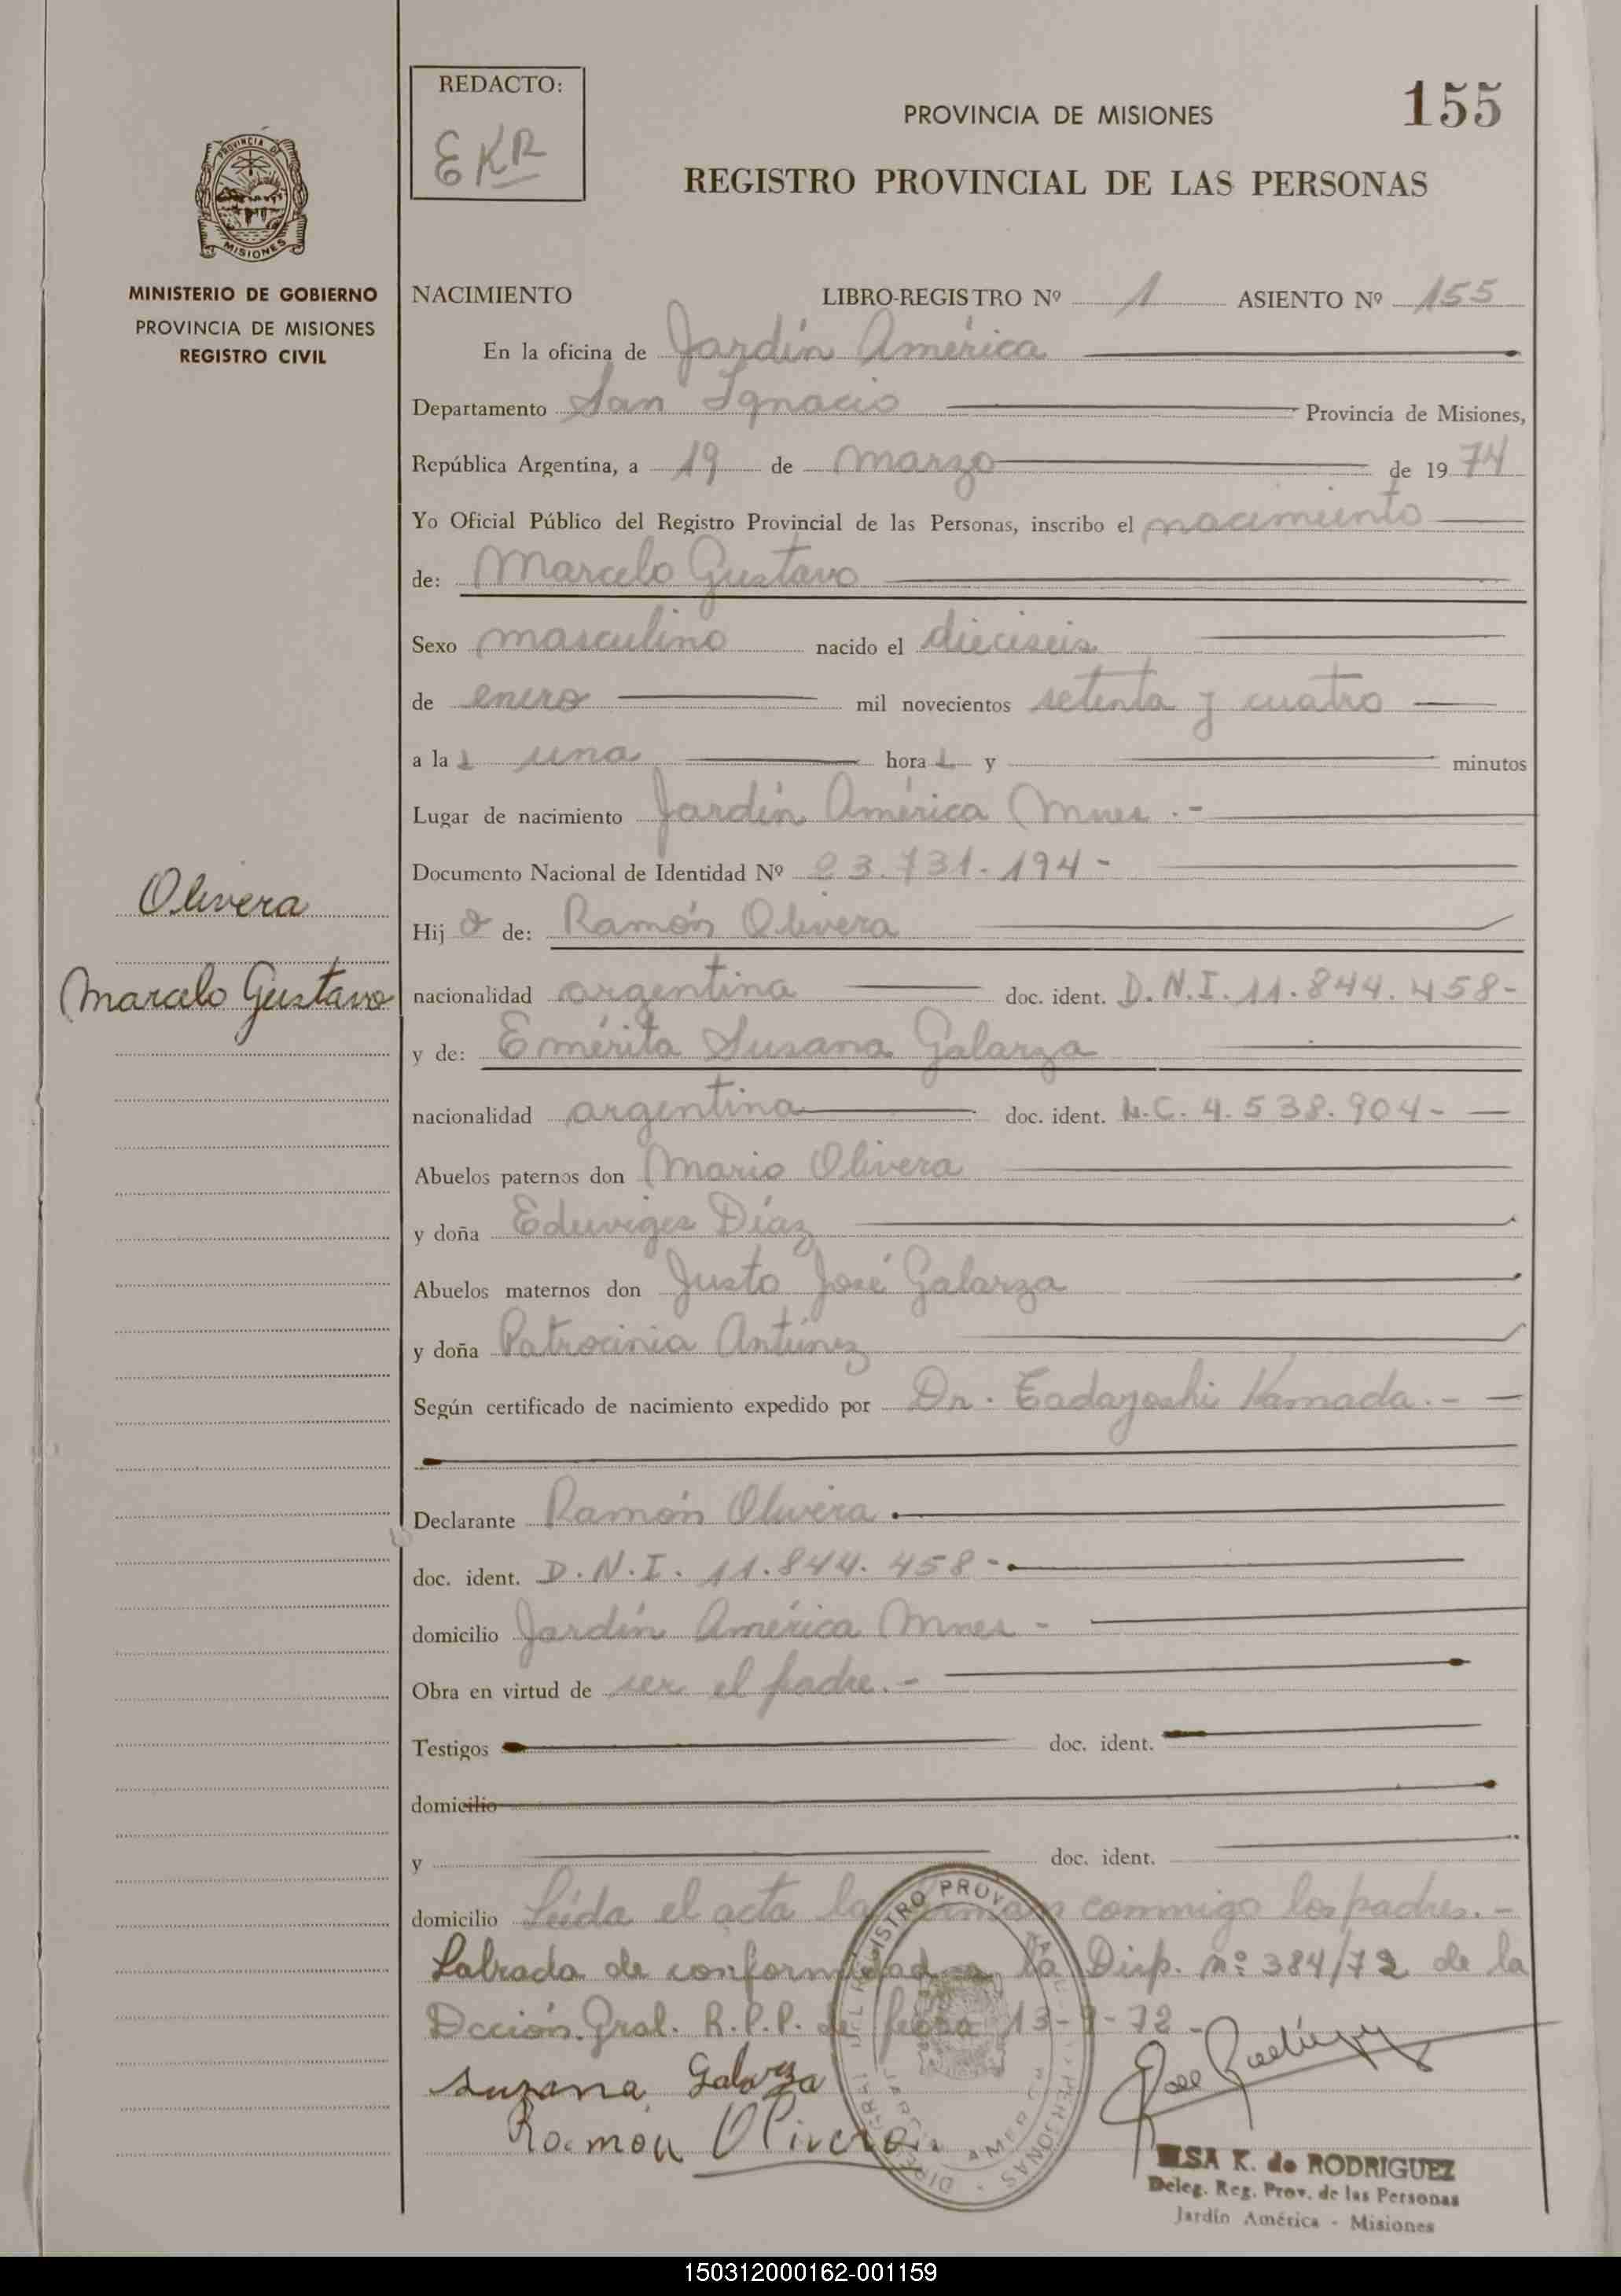 REDACTO:
EKR
PROVINCIA DE MISIONES
155
REGISTRO PROVINCIAL DE LAS PERSONAS
PROVINCIA DE
MISIONES
MINISTERIO DE GOBIERNO
PROVINCIA DE MISIONES
REGISTRO CIVIL
NACIMIENTO LIBRO-REGISTRO Nº 1 ASIENTO Nº 155
En la oficina de Jardín América
Departamento San Ignacio Provincia de Misiones,
República Argentina, a 19 de marzo de 1974
Yo Oficial Público del Registro Provincial de las Personas, inscribo el nacimiento
de: Marcelo Gustavo
Sexo masculino nacido el dieciseis
de enero mil novecientos setenta y cuatro
a la una hora y minutos
Lugar de nacimiento Jardín América Mnes.-
Documento Nacional de Identidad Nº 23.731.194-
Olivera
Marcelo Gustavo
Hijo de: Ramón Olivera
nacionalidad argentina doc. ident. D.N.I. 11.844.458-
y de: Emérita Susana Galarza
nacionalidad argentina doc. ident. L.C. 4.538.904-
Abuelos paternos don Mario Olivera
y doña Eduviges Díaz
Abuelos maternos don Justo José Galarza
y doña Patrocinia Antúnez
Según certificado de nacimiento expedido por Dr. Tadayoshi Kamada.-
Declarante Ramón Olivera
doc. ident. D.N.I. 11.844.458-
domicilio Jardín América Mnes-
Obra en virtud de ser el padre.-
Testigos doc. ident.
domicilio
y doc. ident.
domicilio Leída el acta la firman conmigo los padres.-
Labrada de conformidad a la Disp. nº 384/72 de la
Dcción. Gral. R.P.P. de fecha 13-9-72-
Susana Galarza
Ramón Olivera
ELSA K. de RODRIGUEZ
Deleg. Reg. Prov. de las Personas
Jardín América - Misiones
150312000162-001159